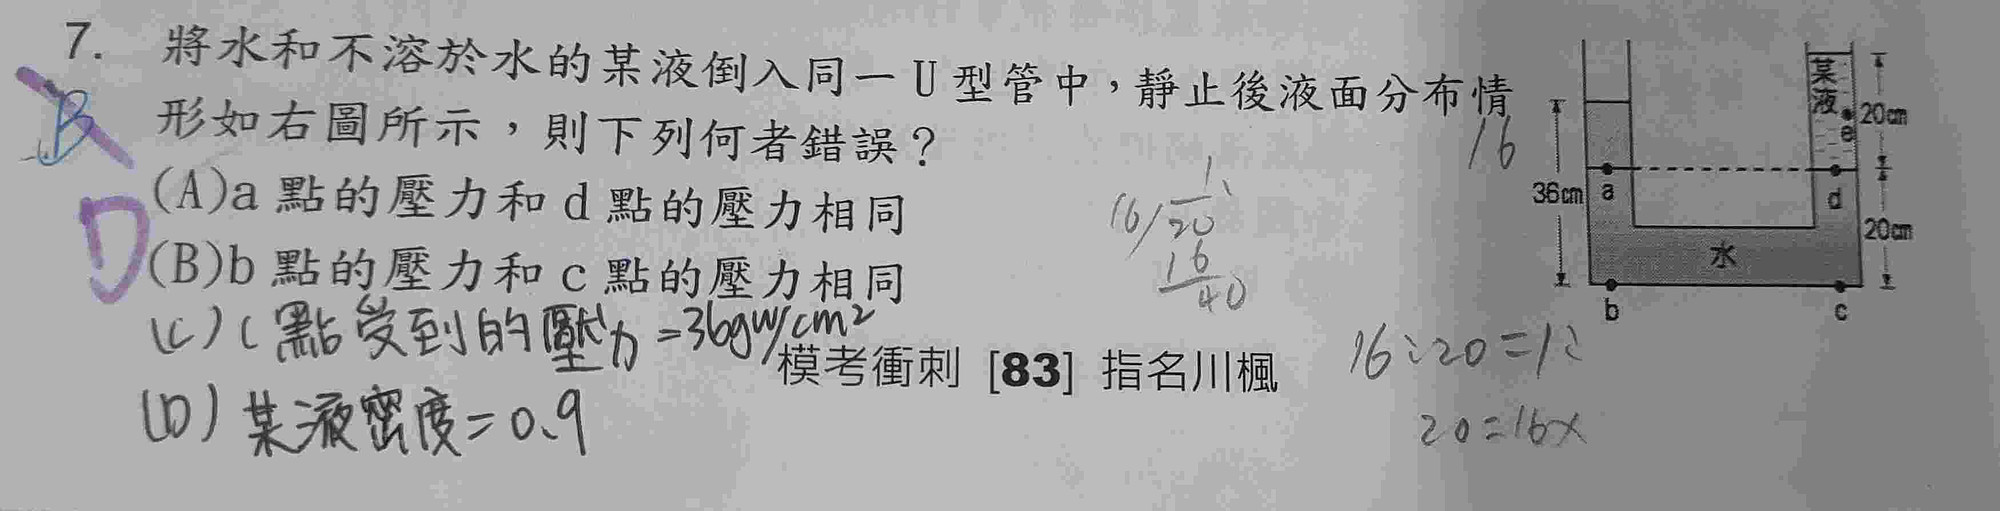 7. 將水和不溶於水的某液倒入同一U型管中，靜止後液面分布情
形如右圖所示，則下列何者錯誤？
(A)a 點的壓力和 d 點的壓力相同
(B)b 點的壓力和 c 點的壓力相同
(C) c 點受到的壓力=36gw/cm²
(D) 某液密度=0.9
模考衝刺 [83] 指名川楓
B
D
16
16/20
16
40
16:20=1:
20=16x
某液
e
20cm
36cm
a
d
20cm
水
b
c